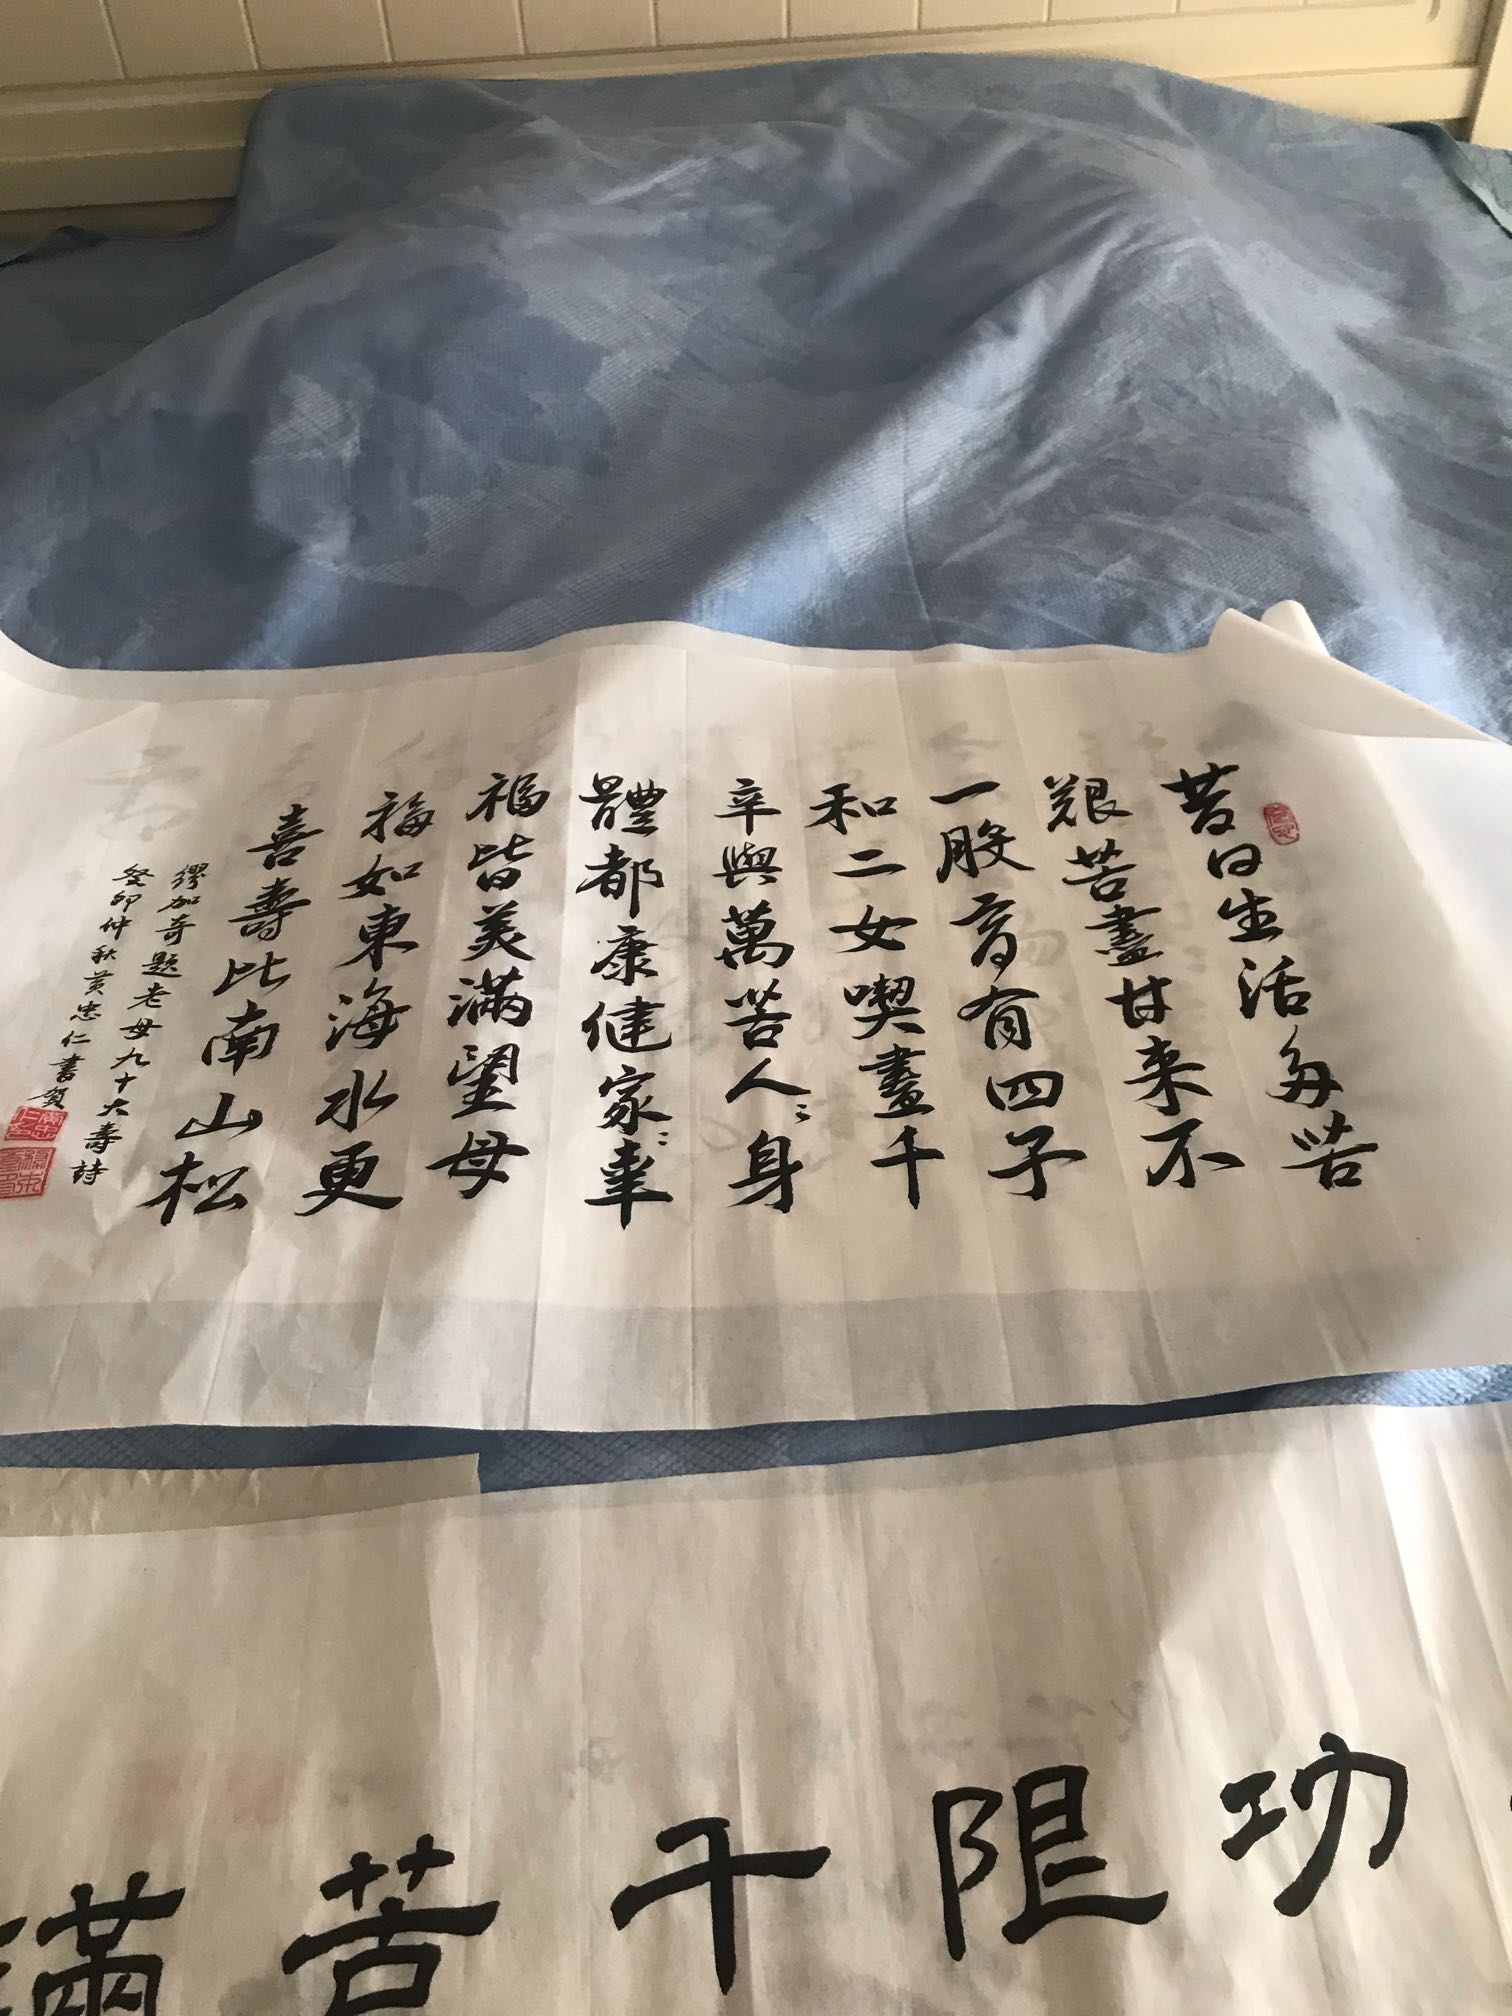 昔日生活多苦
艱苦盡甘来不
一般育有四子
和二女喫盡千
辛與萬苦人〻身
體都康健家〻幸
福皆美滿望母
福如東海水更
喜壽比南山松
繆加奇題老母九十大壽詩
癸卯仲秋黄忠仁書賀
功阻千苦滿